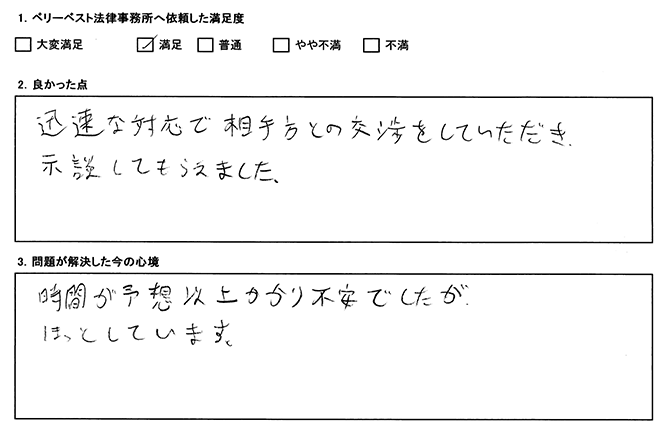 1. ベリーベスト法律事務所へ依頼した満足度
□ 大変満足 ☑ 満足 □ 普通 □ やや不満 □ 不満
2. 良かった点
迅速な対応で相手方との交渉をしていただき、
示談してもらえました。
3. 問題が解決した今の心境
時間が予想以上かかり不安でしたが、
ほっとしています。